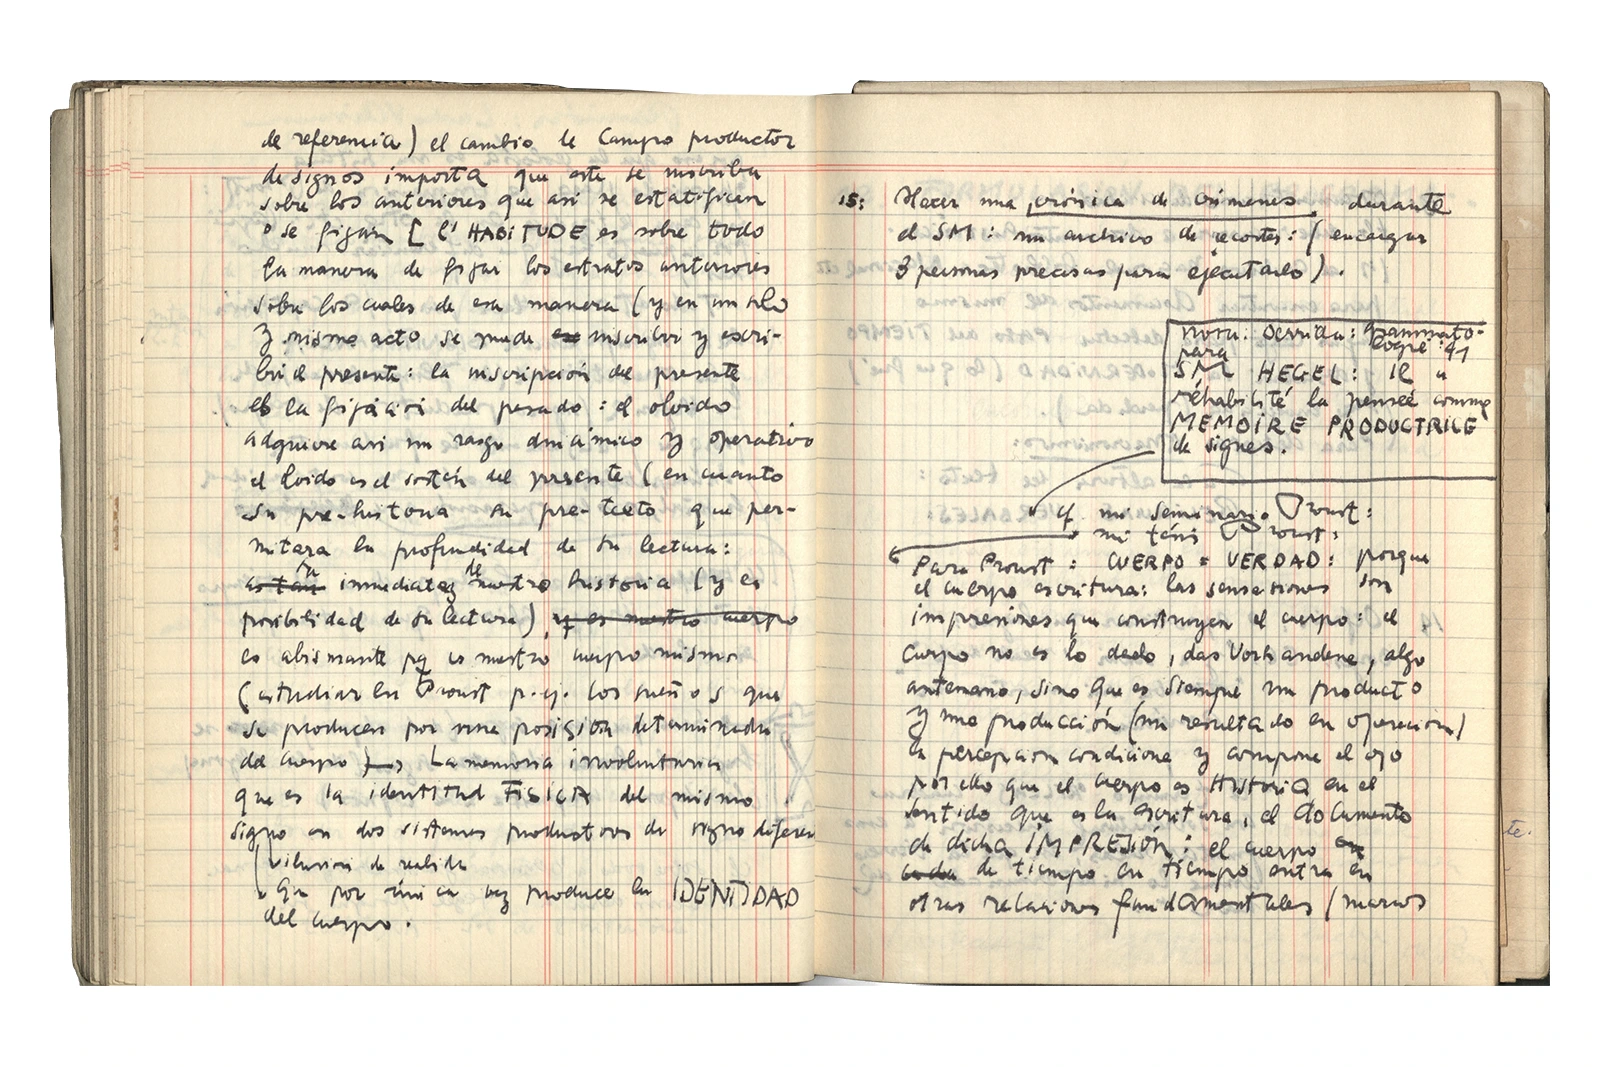 de referencia) el cambio de Campo productor
de signos importa que este se inscriba
sobre los anteriores que asi se estatifican
o se fijan [ l'HABITUDE es sobre todo
la manera de fijar los estratos anteriores
sobre los cuales de esa manera (y en un solo
y mismo acto se puede inscribir y escri-
bir el presente: la inscripción del presente
es la fijación del pasado: el olvido
adquiere asi un rasgo dinámico y operativo
el olvido es el sostén del presente (en cuanto
su pre-historia su pre-texto que per-
mitara la profundidad de su lectura:
la inmediatez de nuestro historia (y es
posibilidad de su lectura) y es nuestro cuerpo
es abismante pq es nuestro cuerpo mismo
(estudiar en Proust p.ej. los sueños que
se producen por una posición determinada
del cuerpo) La memoria involuntaria
que es la identitud FISICA del mismo
signo en dos sistemas productores de signo diferen
de
Que por única vez produce la IDENTIDAD
del cuerpo.
15: Hacer una crónica de crímenes durante
el SM: un archivo de recortes: (encargar
3 personas precisas para ejecutarlo).
Nota. Derrida: Grammato-
logie: 41
para
SM HEGEL: Il a
réhabilité la pensée comme
MEMOIRE PRODUCTRICE
de signes.
cf mi seminario Proust:
mi tésis Proust:
Para Proust: CUERPO = VERDAD: porque
el cuerpo escritura: las sensaciones son
impresiones que construyen el cuerpo: el
cuerpo no es lo dado, das Vorhandene, algo
antemano, sino que es siempre un producto
y una producción (un resultado en operacion)
la percepcion condiciona y compone el ojo
por ello que el cuerpo es Historia en el
sentido que es la escritura, el documento
de dicha IMPRESIÓN: el cuerpo
de tiempo en tiempo entra en
otras relaciones fundamentales (marcos
te.